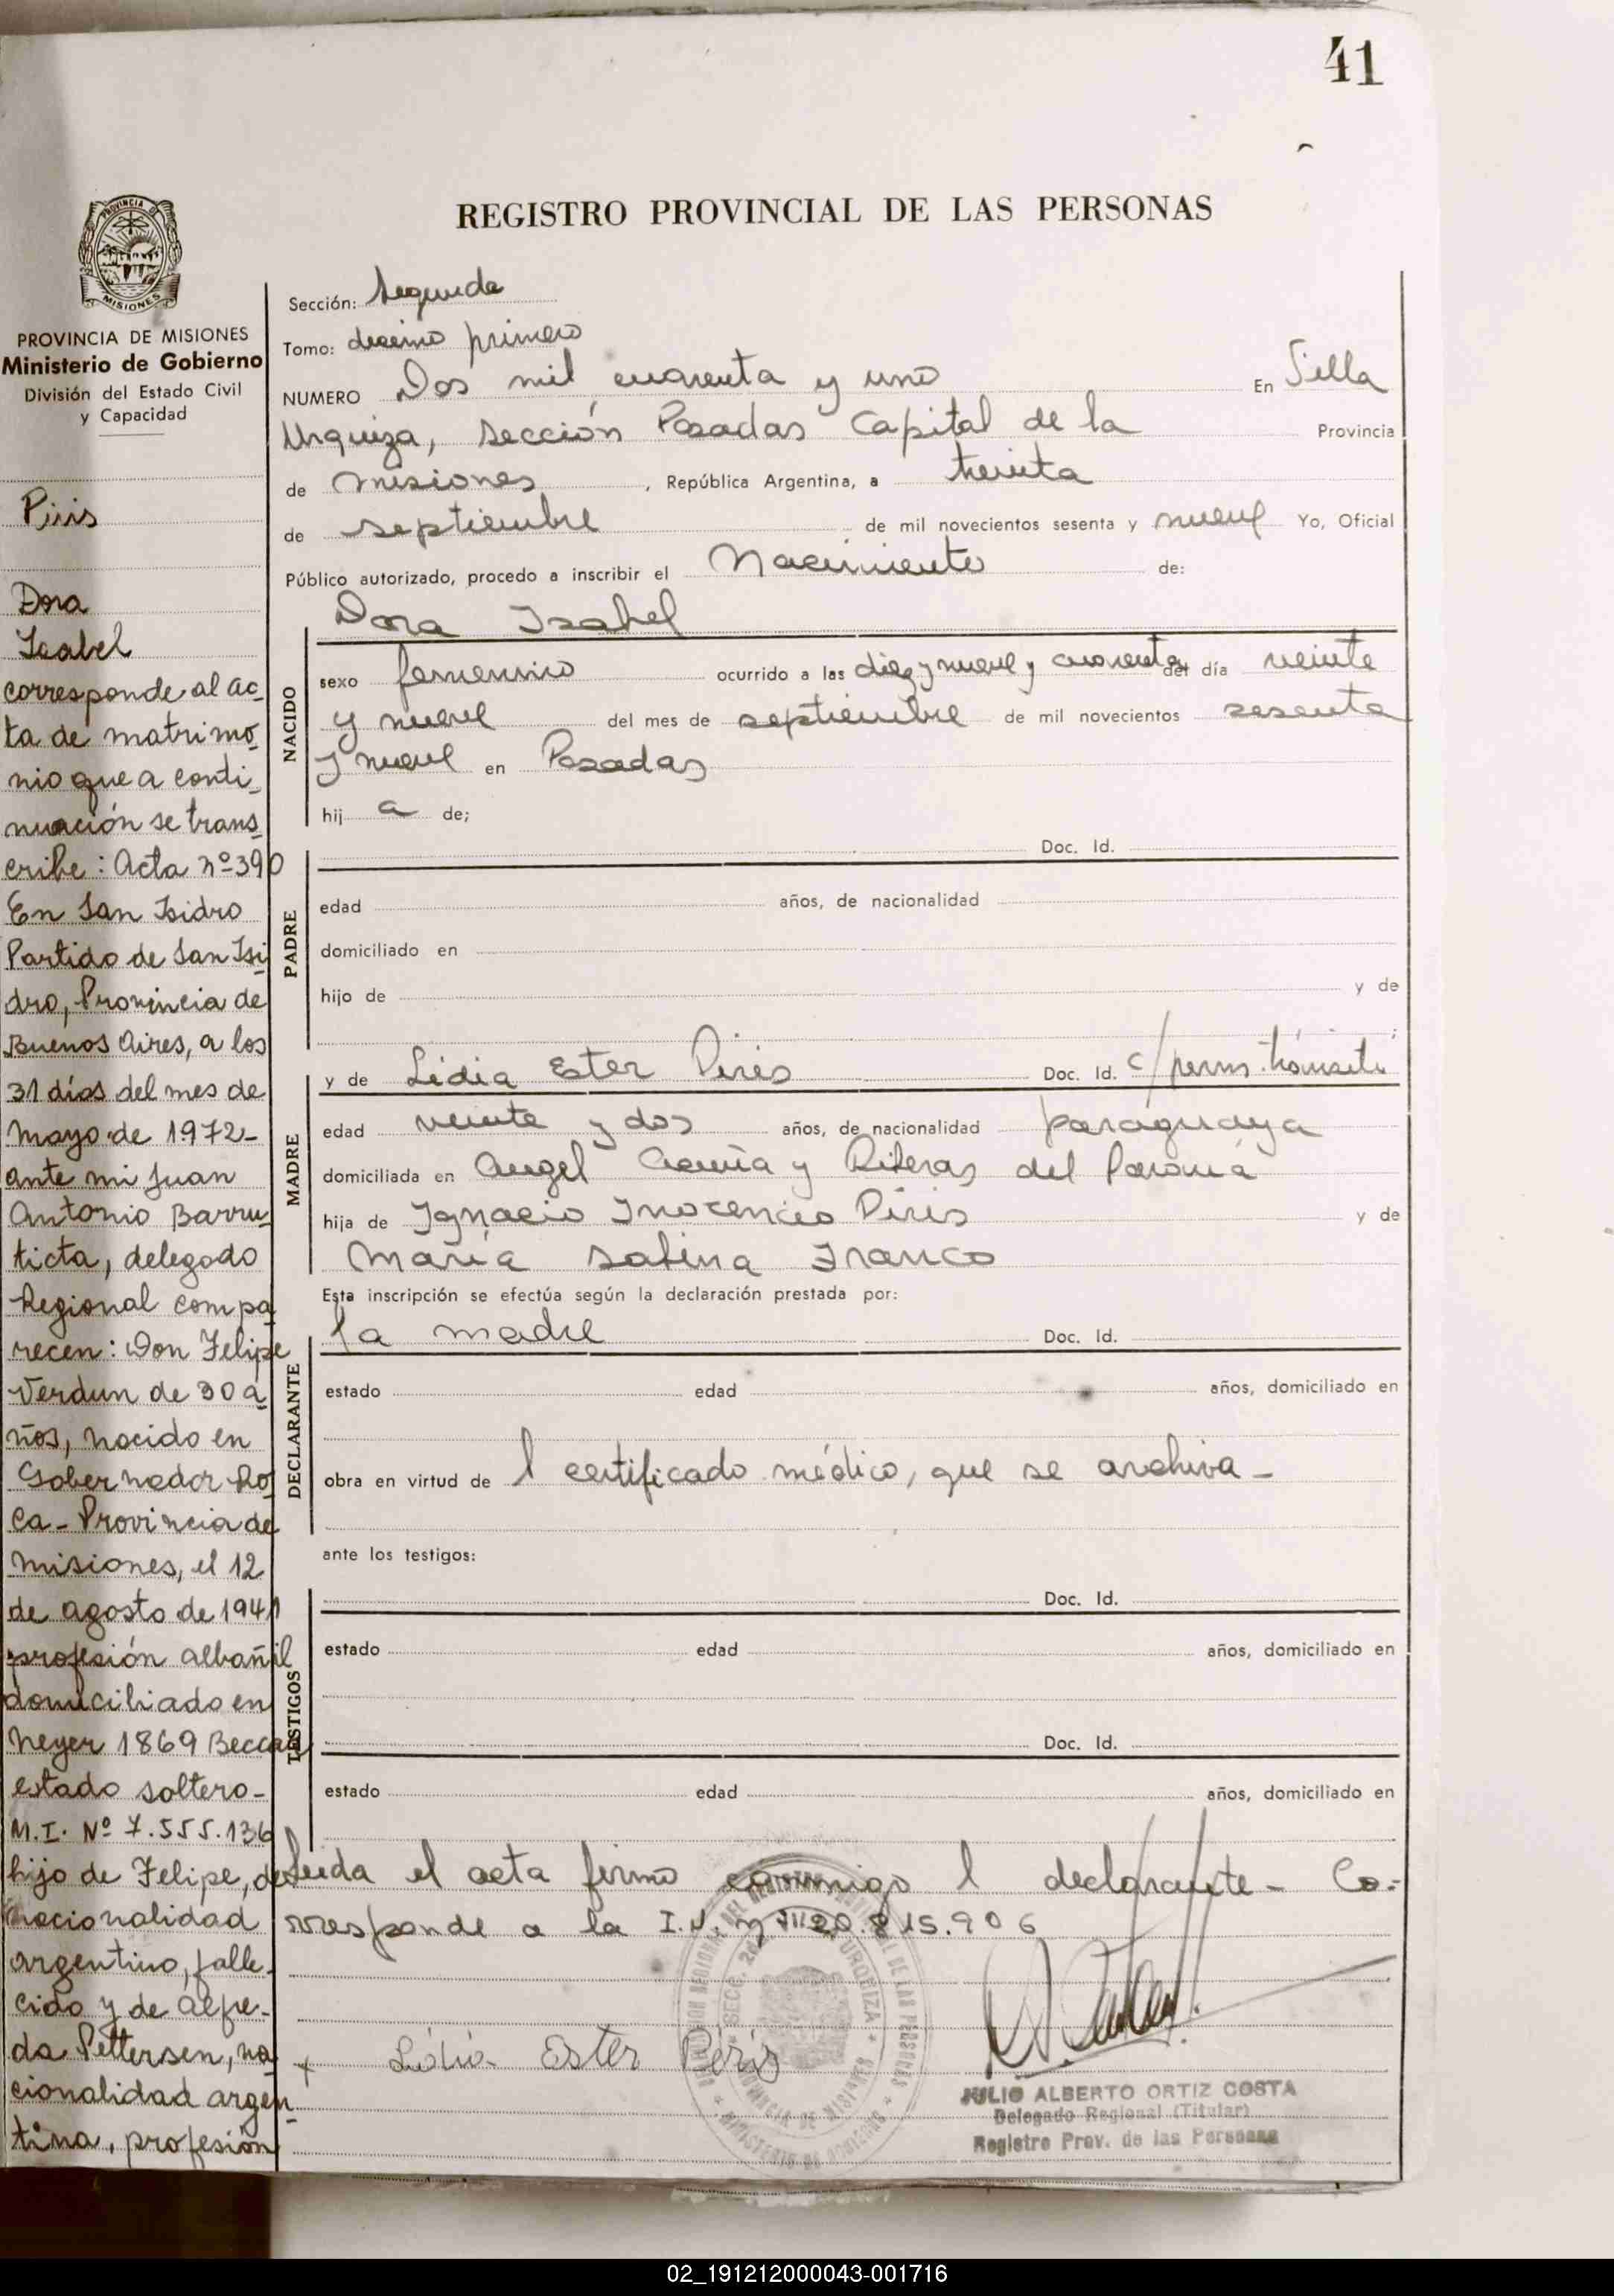 41
REGISTRO PROVINCIAL DE LAS PERSONAS
PROVINCIA DE
MISIONES
PROVINCIA DE MISIONES
Ministerio de Gobierno
División del Estado Civil
y Capacidad
Piris
Dora
Isabel
corresponde al ac-
ta de matrimo-
nio que a conti-
nuación se trans-
cribe: Acta nº 390
En San Isidro
Partido de San Isi-
dro, Provincia de
Buenos Aires, a los
31 días del mes de
Mayo de 1972-
ante mi Juan
Antonio Barru-
ticta, delegado
Regional compa-
recen: Don Felipe
Verdun de 30 a-
ños, nacido en
Gobernador Ro-
ca - Provincia de
Misiones, el 12
de agosto de 1941
profesión albañil
domiciliado en
Neyer 1869 Beccar
estado soltero-
M.I. Nº 7.555.136
hijo de Felipe, de
nacionalidad
argentino, falle-
cido y de Alfre-
da Pettersen, na-
cionalidad argen-
tina, profesión
Sección: Segunda
Tomo: decimo primero
NUMERO Dos mil cuarenta y uno En Villa
Urquiza, Sección Posadas Capital de la Provincia
de Misiones, República Argentina, a treinta
de septiembre de mil novecientos sesenta y nueve Yo, Oficial
Público autorizado, procedo a inscribir el Nacimiento de:
Dora Isabel
NACIDO
sexo femenino ocurrido a las diez y nueve y cuarenta del día veinte
y nueve del mes de septiembre de mil novecientos sesenta
y nueve en Posadas
hij a de;
Doc. Id.
PADRE
edad años, de nacionalidad
domiciliado en
hijo de y de
;
MADRE
y de Lidia Ester Piris Doc. Id. c/perm. tránsito
edad veinte y dos años, de nacionalidad paraguaya
domiciliada en Angel Acuña y Riberas del Paraná
hija de Ignacio Inocencio Piris y de
María Sabina Franco
Esta inscripción se efectúa según la declaración prestada por:
la madre Doc. Id.
DECLARANTE
estado edad años, domiciliado en
obra en virtud de l certificado médico, que se archiva -
ante los testigos:
TESTIGOS
Doc. Id.
estado edad años, domiciliado en
Doc. Id.
estado edad años, domiciliado en
Leida el acta firmo conmigo l declarante - Co-
rresponde a la I.N. nº 20.815.906
+ Lidia Ester Piris
JULIO ALBERTO ORTIZ COSTA
Delegado Regional (Titular)
Registro Prov. de las Personas
02_191212000043-001716